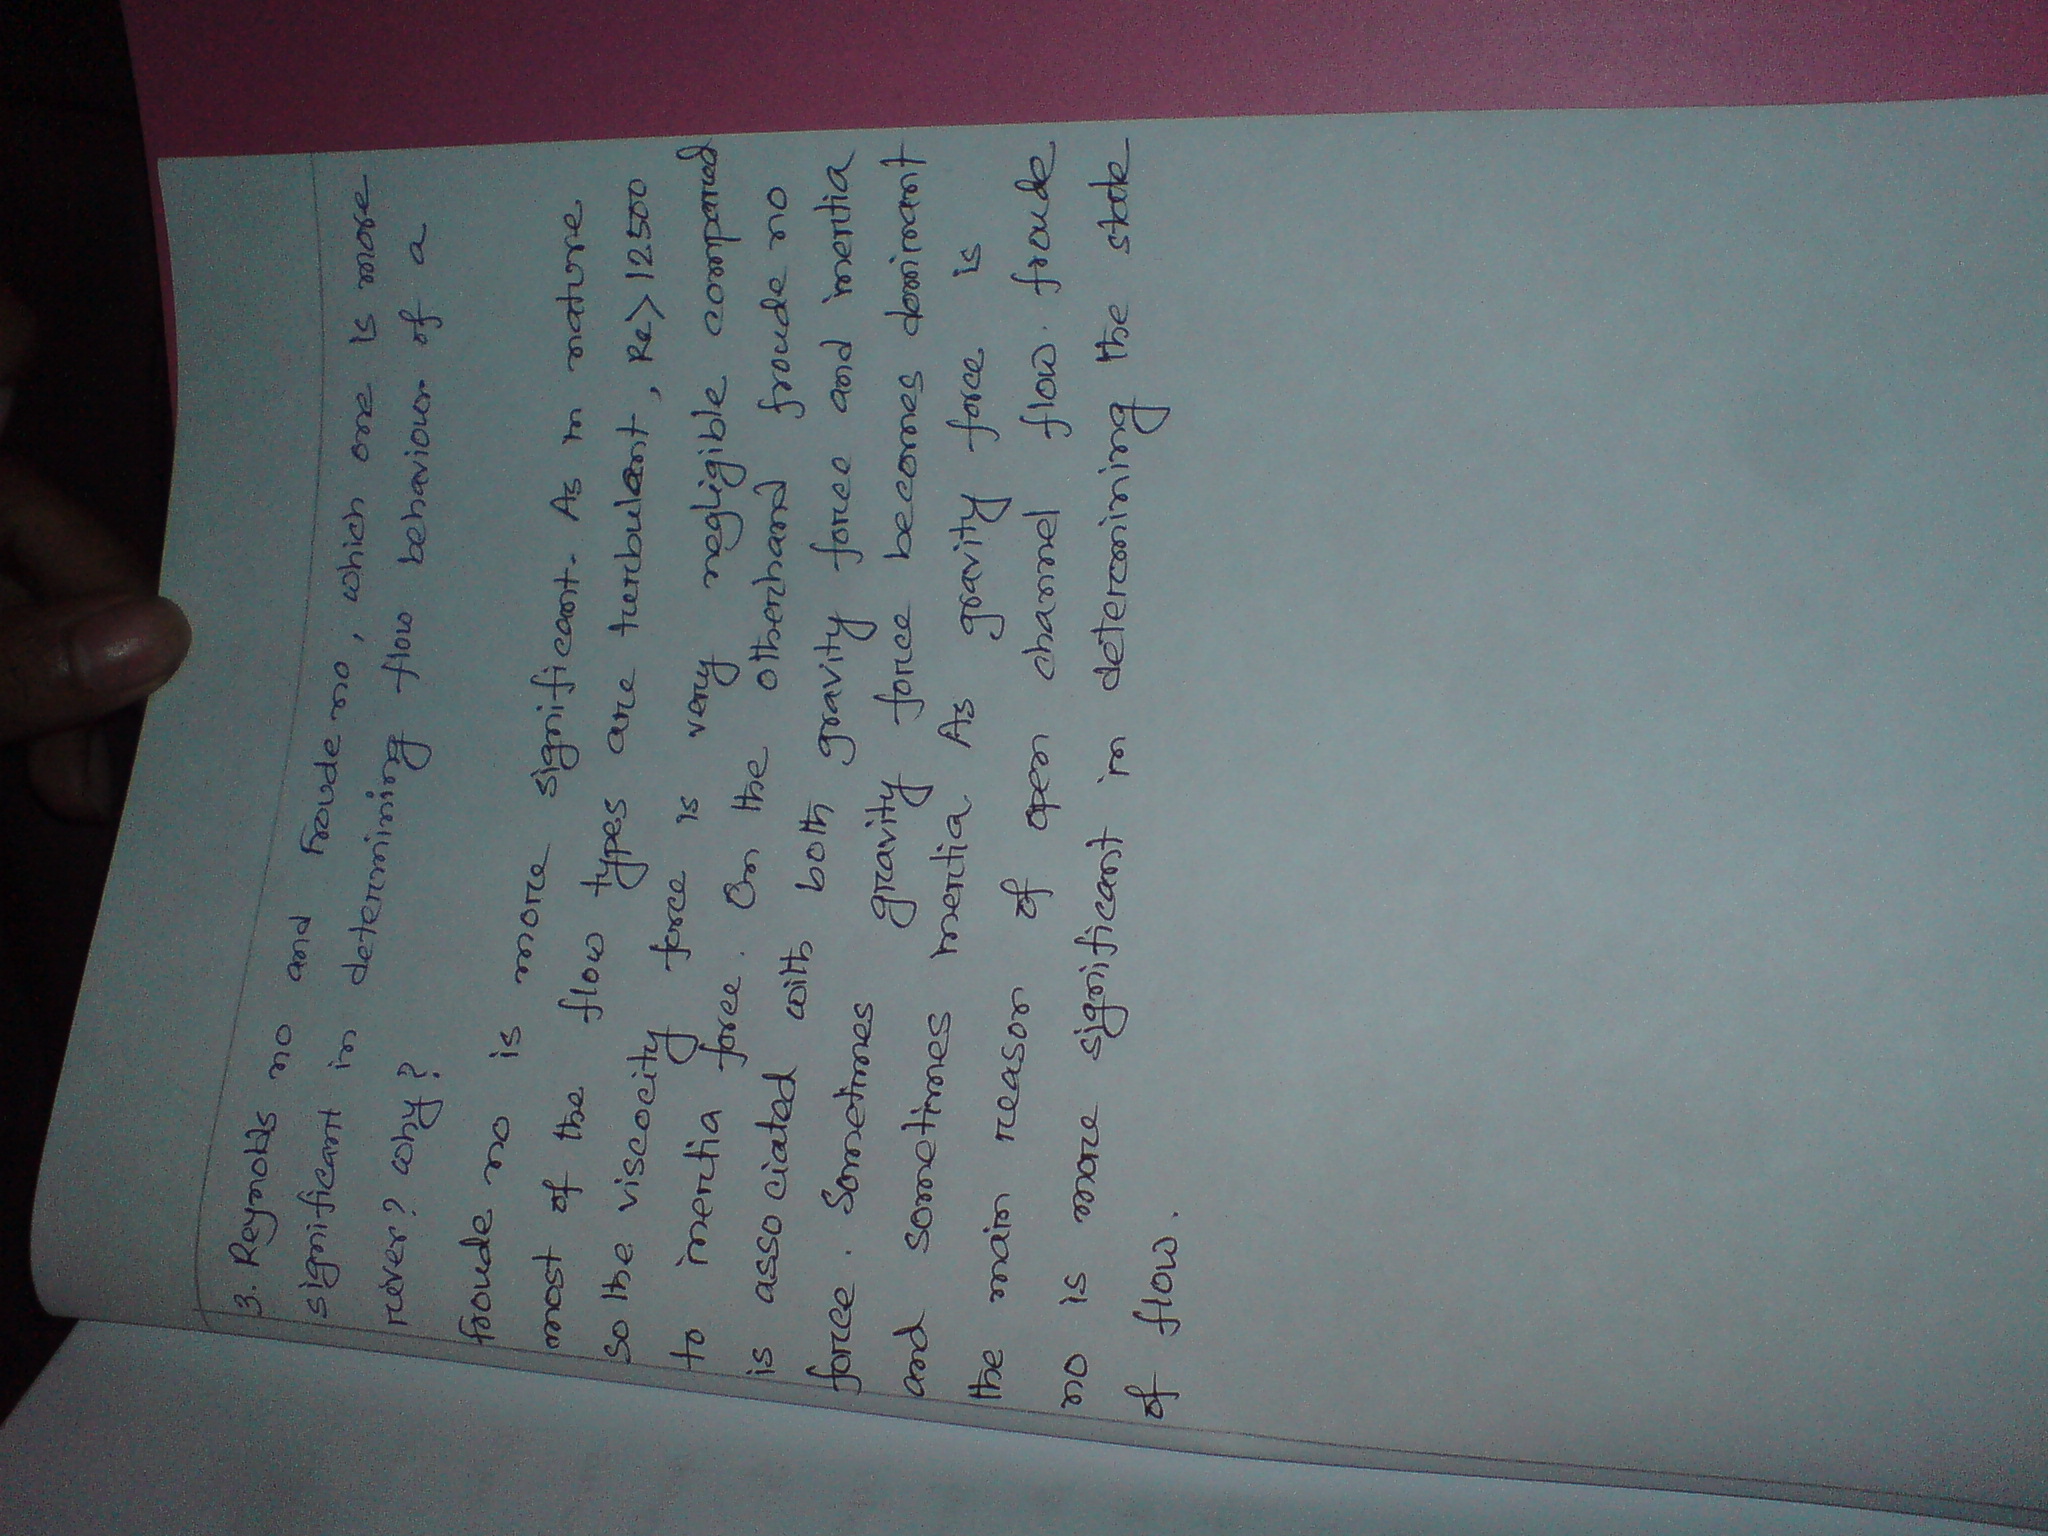 3. Reynolds no and Froude no, which one is more
significant in determining flow behaviour of a
river? why?
froude no is more significant. As in nature
most of the flow types are turbulent, Re>12500
So the viscocity force is very negligible compared
to inertia force. On the otherhand froude no
is associated with both gravity force and inertia
force. Sometimes gravity force becomes dominant
and sometimes inertia. As gravity force is
the main reason of open channel flow. froude
no is more significant in determining the state
of flow.